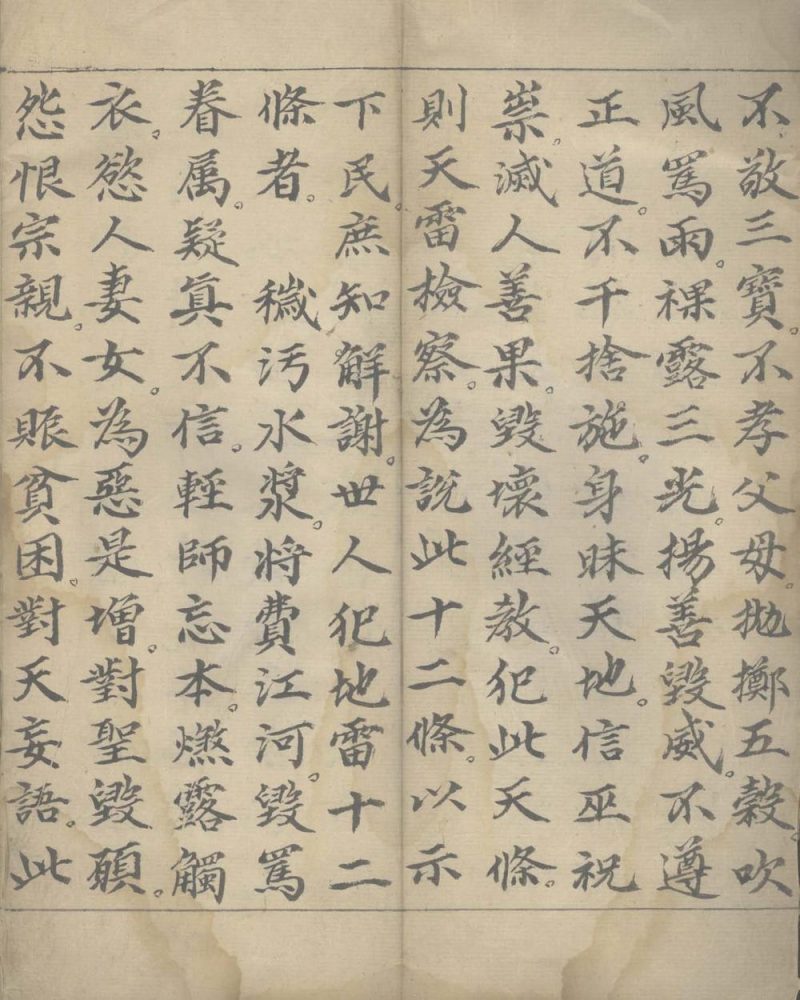 不敬三寶。不孝父母。拋擲五穀。吹
風罵雨。裸露三光。揚善毀威。不遵
正道。不千捨施。身昧天地。信巫祝
祟。滅人善果。毀壞經教。犯此天條。
則天雷檢察。為説此十二條。以示
下民。庶知解謝。世人犯地雷十二
條者。 穢污水漿。將費江河。毀罵
眷属。疑眞不信。輕師忘本。燃露觸
衣。慾人妻女。為惡是增。對聖毀願。
怨恨宗親。不賑貧困。對天妄語。此